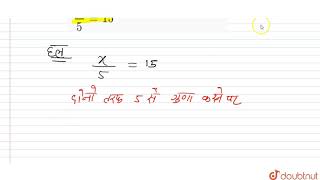 5 = 15
हल
x/5 = 15
दोनो तरफ 5 से गुणा करने पर
doubtnut